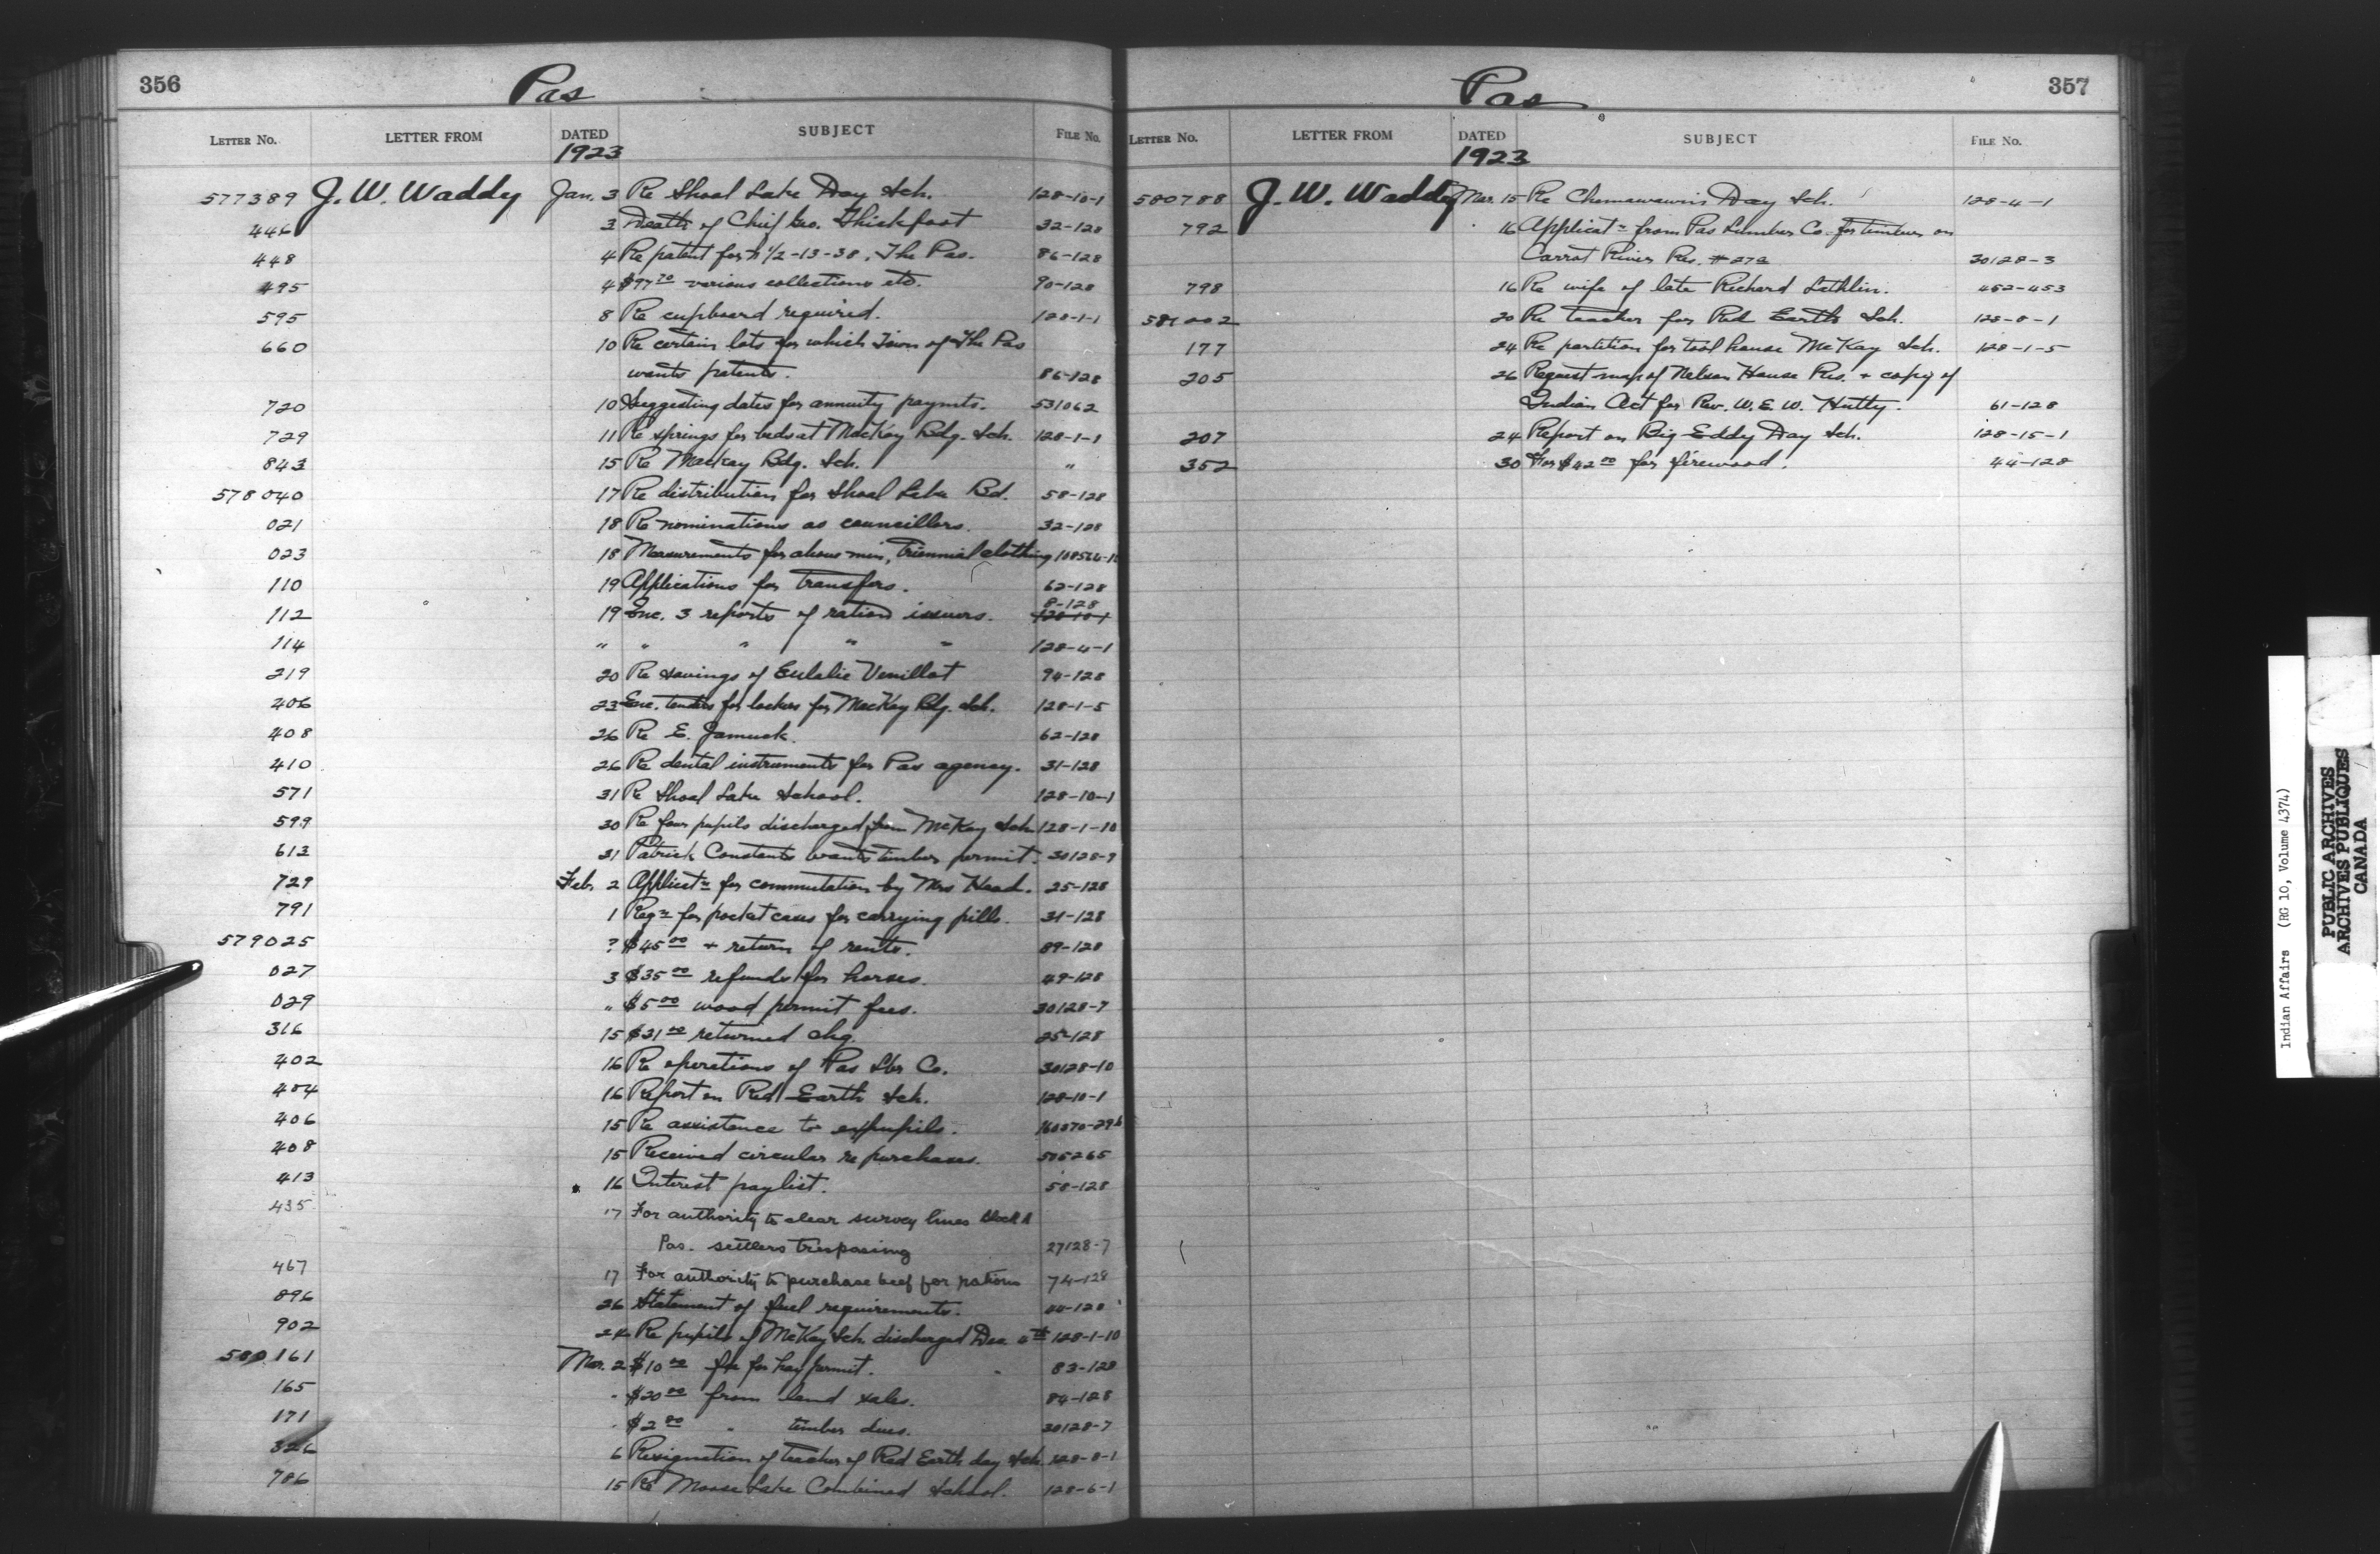 356
Pas
LETTER No. LETTER FROM DATED SUBJECT FILE No.
1923
577389 J. W. Waddy Jan. 3 Re Shoal Lake Day Sch. 128-10-1
446 3 Death of Chief Geo. Thickfoot 32-128
448 4 Re patent for 1/2-13-38, The Pas. 86-128
495 4 various collections etc. 90-128
595 8 Re cupboard required. 128-1-1
660 10 Re certain lots for which Town of The Pas
wants patents. 86-128
720 10 Suggesting dates for annuity paymts. 531062
729 11 Re springs for beds at MacKay Bdg. Sch. 128-1-1
843 15 Re MacKay Bdg. Sch. "
578040 17 Re distribution for Shoal Lake Bd. 58-128
021 18 Re nominations as councillors. 32-128
023 18 Measurements for above men, Triennial clothing
110 19 Applications for transfers. 62-128
112 19 Enc. 3 reports of ration issuers. 8-128
114 " " " " " 128-4-1
219 20 Re savings of Eulalie 94-128
406 23 Enc. tenders for lockers for MacKay Bdg. Sch. 128-1-5
408 26 Re E. Jamuck. 62-128
410 26 Re dental instruments for Pas agency. 31-128
571 31 Re Shoal Lake School. 128-10-1
599 30 Re four pupils discharged from McKay Sch 128-1-10
613 31 Patrick Constants wants timber permit. 30128-9
729 Feb. 2 Applictn for commutation by Mrs Head. 25-128
791 1 Reqn for pocket cases for carrying pills. 31-128
579025 ? $45 00 + return of rents. 89-128
027 3 $35 00 refunds for horses. 49-128
029 " $5 00 wood permit fees. 30128-7
316 15 $31 00 returned chq. 25-128
402 16 Re operations of Pas Lbr Co. 30128-10
404 16 Report on Red Earth Sch. 128-10-1
406 15 Re assistance to expupils.
408 15 Received circular re purchases.
413 16 Interest paylist. 58-128
435 17 For authority to clear survey lines Block A
Pas. settlers trespasing 27128-7
467 17 For authority to purchase beef for rations 74-128
896 26 Statement of fuel requirements. 44-128
902 24 Re pupils of McKay Sch. discharged Dec. 128-1-10
580161 Mar. 2 $10 00 fee for hay permit. 83-128
165 " $20 00 from land sales. 84-128
171 " $2 00 " timber dues. 30128-7
326 6 Resignation of teacher of Red Earth day Sch. 128-8-1
786 15 Re Moose Lake Combined School. 128-6-1
357
Pas
LETTER No. LETTER FROM DATED SUBJECT FILE No.
1923
580788 J. W. Waddy Mar. 15 Re Chemawawin's Day Sch. 128-4-1
792 16 Applicatn from Pas Lumber Co. for timber on
Carrot River Res. 30128-3
798 16 Re wife of late Richard Lathlin. 452-453
581002 20 Re teacher for Red Earth Sch. 128-8-1
177 24 Re partition for tool house McKay Sch. 128-1-5
205 26 Request map of Nelson House Res. + copy of
Indian Act for Rev. W. E. W. Hutty. 61-128
207 24 Report on Big Eddy Day Sch. 128-15-1
352 30 For $42 00 for firewood. 44-128
Indian Affairs (RG 10, Volume 4374)
PUBLIC ARCHIVES
ARCHIVES PUBLIQUES
CANADA